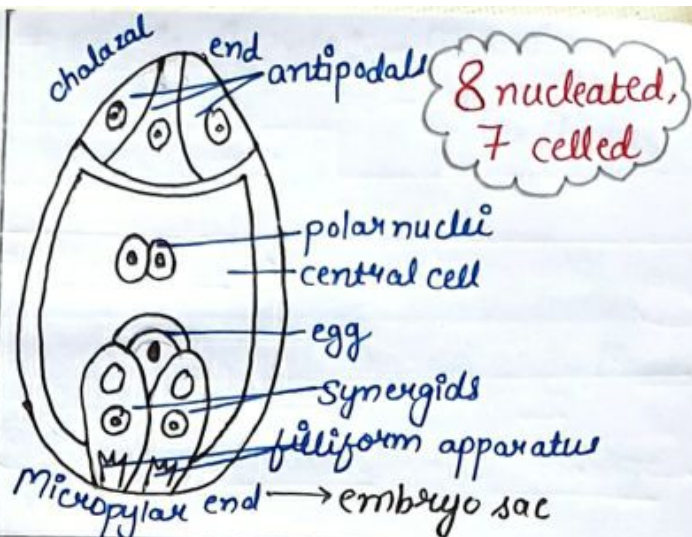 chalazal end
antipodals
8 nucleated,
7 celled
polar nuclei
central cell
egg
synergids
filliform apparatus
Micropylar end → embryo sac